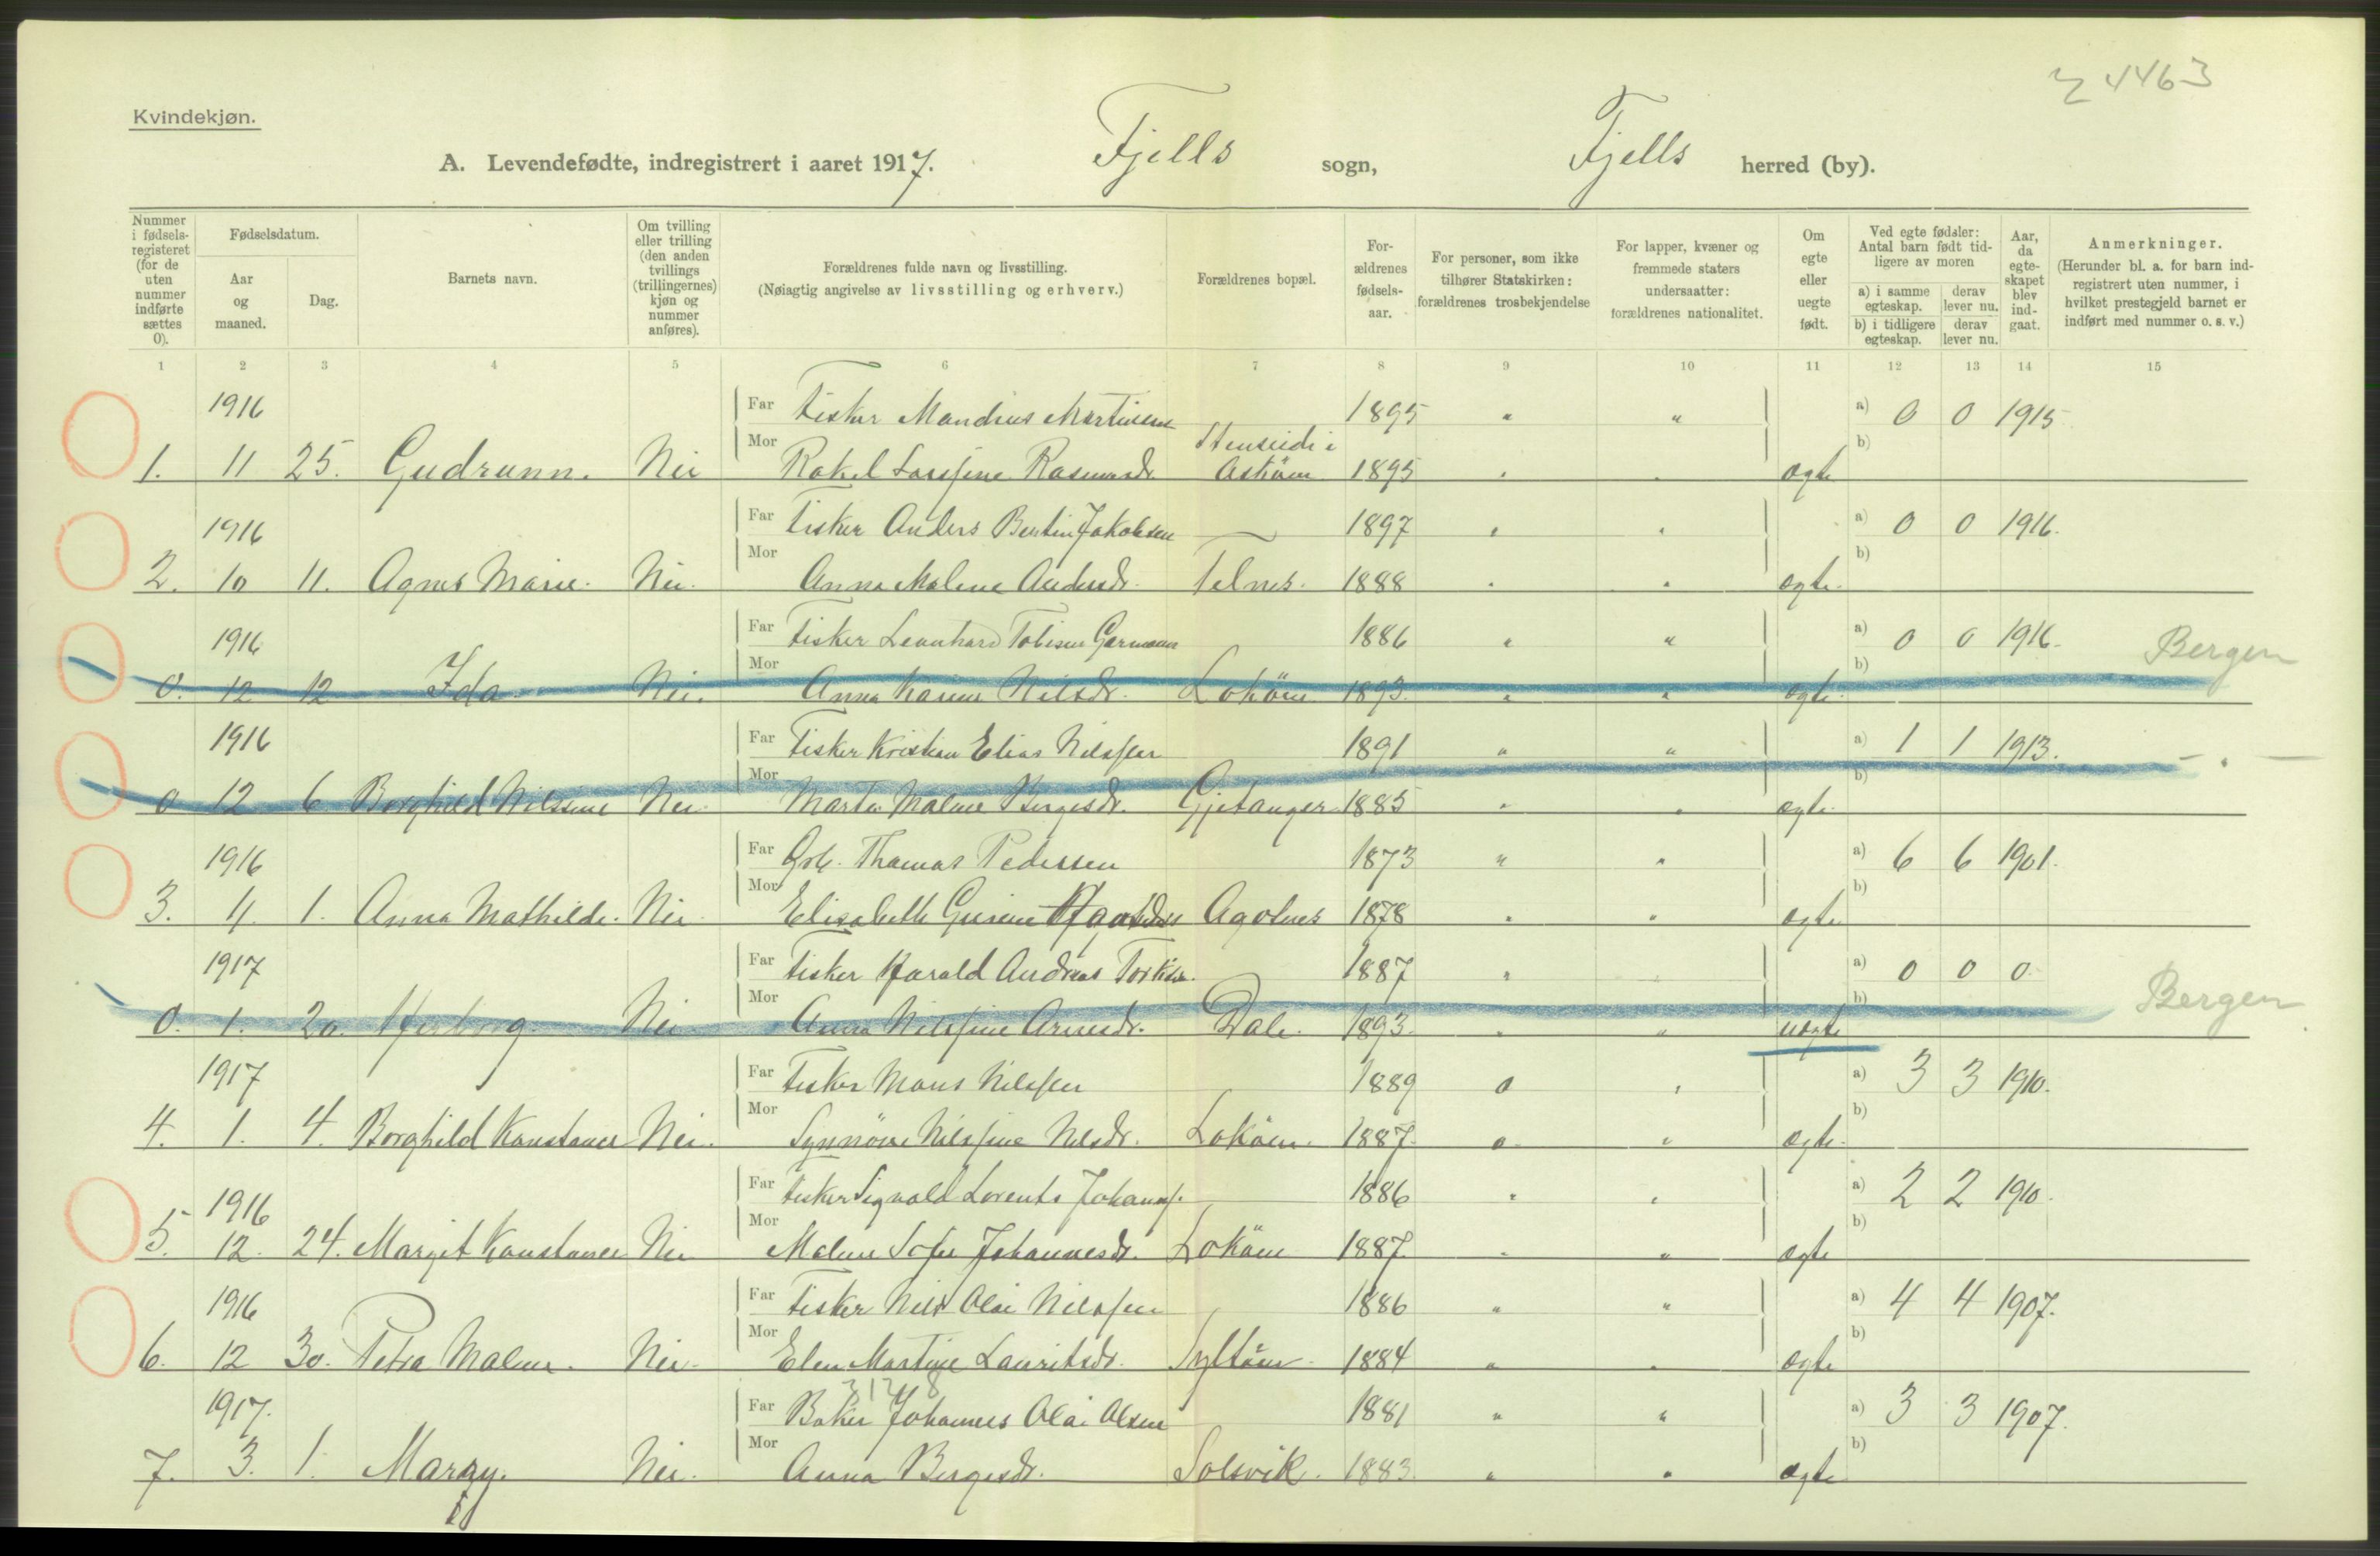 24463
Kvindekjøn.
A. Levendefødte, indregistrert i aaret 1917. Fjells sogn, Fjells herred (by).
Nummer i fødselsregisteret (for de uten nummer indførte sættes 0).
Fødselsdatum.
Aar og maaned.
Dag.
Barnets navn.
Om tvilling eller trilling (den anden tvillings (trillingernes) kjøn og nummer anføres).
Forældrenes fulde navn og livsstilling.
(Nøiagtig angivelse av livsstilling og erhverv.)
Forældrenes bopæl.
Forældrenes fødselsaar.
For personer, som ikke tilhører Statskirken: forældrenes trosbekjendelse
For lapper, kvæner og fremmede staters undersaatter: forældrenes nationalitet.
Om egte eller uegte født.
Ved egte fødsler: Antal barn født tidligere av moren
a) i samme egteskap. derav lever nu.
b) i tidligere egteskap. derav lever nu.
Aar, da egteskapet blev indgaat.
Anmerkninger.
(Herunder bl. a. for barn indregistrert uten nummer, i hvilket prestegjeld barnet er indført med nummer o. s. v.)
1 2 3 4 5 6 7 8 9 10 11 12 13 14 15
1916 Far Fisker Mandius Martinsen 1895 " " a) 0 0 1915
Mor Stenseide i b)
1. 11 25. Gudrunn. Nei Rakel Larsine Rasmusdr. Askøen 1895 " " egte
1916 Far Fisker Anders Bentin Jakobsen 1897 " " a) 0 0 1916.
Mor b)
2. 10 11. Agnes Marie. Nei. Anna Malene Andersdr. Telnes. 1888 " " egte.
1916 Far Fisker Leonhard Tobisen Garmann 1886 " " a) 0 0 1916. Bergen
Mor b)
0. 12 12 Ida. Nei. Anna Karine Nilsdr. Lokøen 1893. " " egte.
1916 Far Fisker Kristian Elias Nilssen 1891 " " a) 1 1 1913. — " —
Mor b)
0 12 6 Borghild Nilssine Nei. Marta Malene Bergesdr. Gjetanger 1885 " " egte.
1916 Far Grb. Thomas Pedersen 1873 " " a) 6 6 1901.
Mor b)
3. 4. 1. Anna Mathilde. Nei Elisabeth Gurine Agotnes 1878 " " egte
1917 Far Fisker Harald Andreas 1887 " a) 0 0 0 Bergen
Mor b)
0. 1. 20. Herborg. Nei Anna Nilssine Arnesdr. Dale. 1893. " " uegte
1917 Far Fisker Mons Nilssen 1889 0 " a) 3 3 1910.
Mor b)
4. 1. 4. Borghild Konstance Nei. Synnøve Nilssine Nilsdr. Lokøen. 1887 0 " egte.
1916 Far Fisker Sigvald Lorents Johanns. 1886 " " a) 2 2 1910.
Mor b)
5. 12. 24. Margit Konstance Nei Malene Sofie Johannesdr. Lokøen 1887. " " egte
1916 Far Fisker Nils Olai Nilssen 1886 " " a) 4 4 1907.
Mor b)
6. 12 30. Petra Malene. Nei. Elen Martine Lauritsdr. Syltøen. 1884 " " egte
31248
1917. Far Baker Johannes Olai Olsen 1881 " " a) 3 3 1907.
Mor b)
7. 3. 1. Margy. Nei. Anna Bergesdr. Solsvik. 1883. " " egte